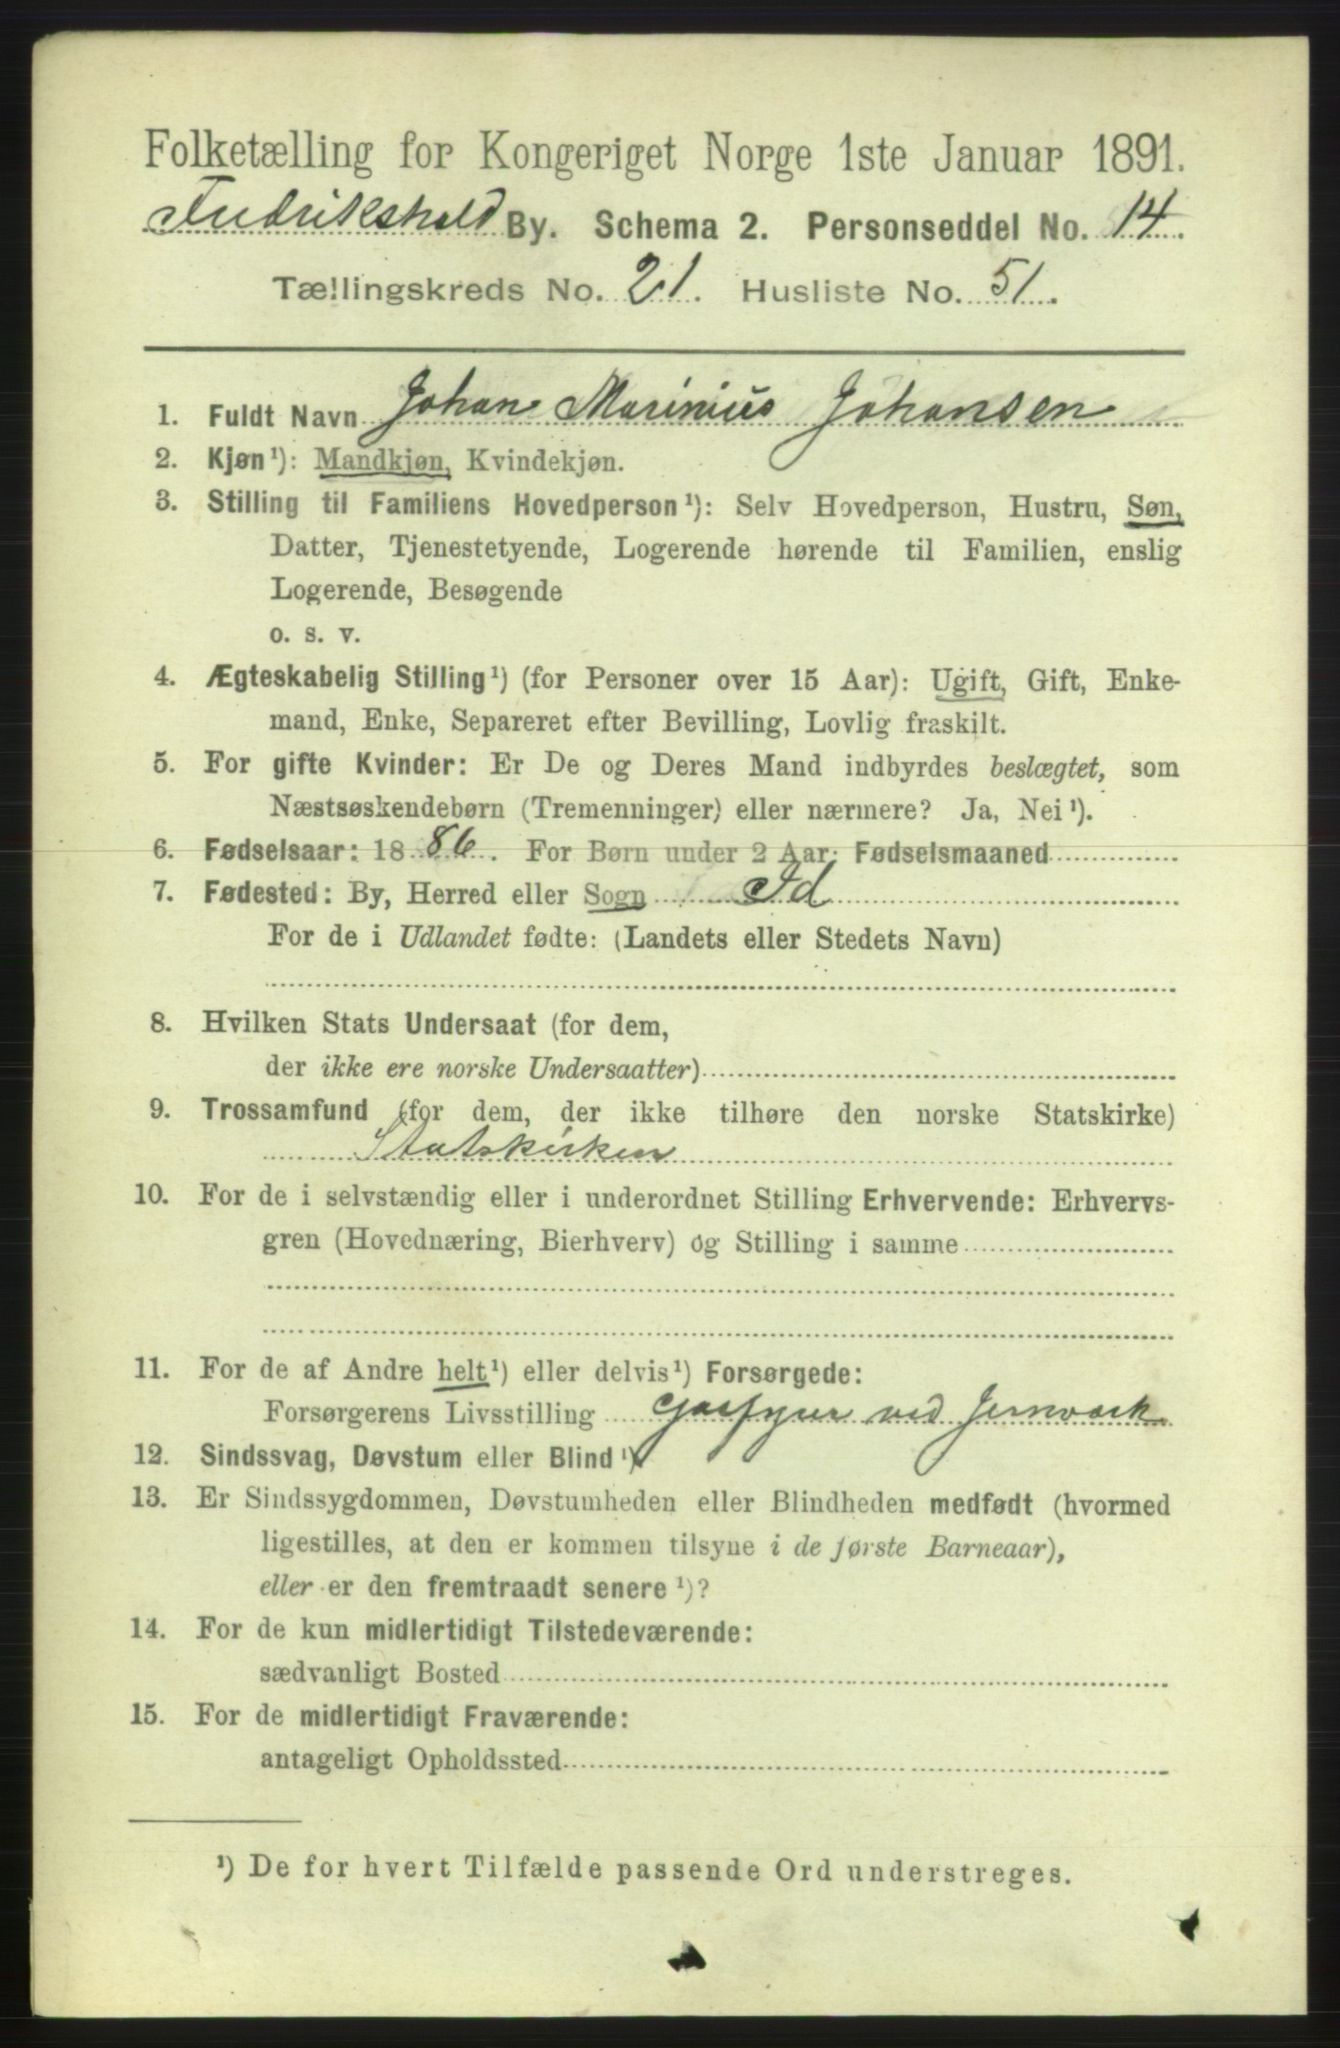 Folketælling for Kongeriget Norge 1ste Januar 1891.
Fredrikshald By. Schema 2. Personseddel No. 14.
Tællingskreds No. 21. Husliste No. 51.
1. Fuldt Navn Johan Marinius Johansen
2. Kjøn¹): Mandkjøn, Kvindekjøn.
3. Stilling til Familiens Hovedperson¹): Selv Hovedperson, Hustru, Søn,
Datter, Tjenestetyende, Logerende hørende til Familien, enslig
Logerende, Besøgende
o. s. v.
4. Ægteskabelig Stilling¹) (for Personer over 15 Aar): Ugift, Gift, Enke-
mand, Enke, Separeret efter Bevilling, Lovlig fraskilt.
5. For gifte Kvinder: Er De og Deres Mand indbyrdes beslægtet, som
Næstsøskendebørn (Tremenninger) eller nærmere? Ja, Nei¹).
6. Fødselsaar: 1886. For Børn under 2 Aar: Fødselsmaaned
7. Fødested: By, Herred eller Sogn Id
For de i Udlandet fødte: (Landets eller Stedets Navn)
8. Hvilken Stats Undersaat (for dem,
der ikke ere norske Undersaatter)
9. Trossamfund (for dem, der ikke tilhøre den norske Statskirke)
Statskirken
10. For de i selvstændig eller i underordnet Stilling Erhvervende: Erhvervs-
gren (Hovednæring, Bierhverv) og Stilling i samme
11. For de af Andre helt¹) eller delvis¹) Forsørgede:
Forsørgerens Livsstilling Gasfyrer ved Jernværk
12. Sindssvag, Døvstum eller Blind¹)
13. Er Sindssygdommen, Døvstumheden eller Blindheden medfødt (hvormed
ligestilles, at den er kommen tilsyne i de første Barneaar),
eller er den fremtraadt senere¹)?
14. For de kun midlertidigt Tilstedeværende:
sædvanligt Bosted
15. For de midlertidigt Fraværende:
antageligt Opholdssted
¹) De for hvert Tilfælde passende Ord understreges.